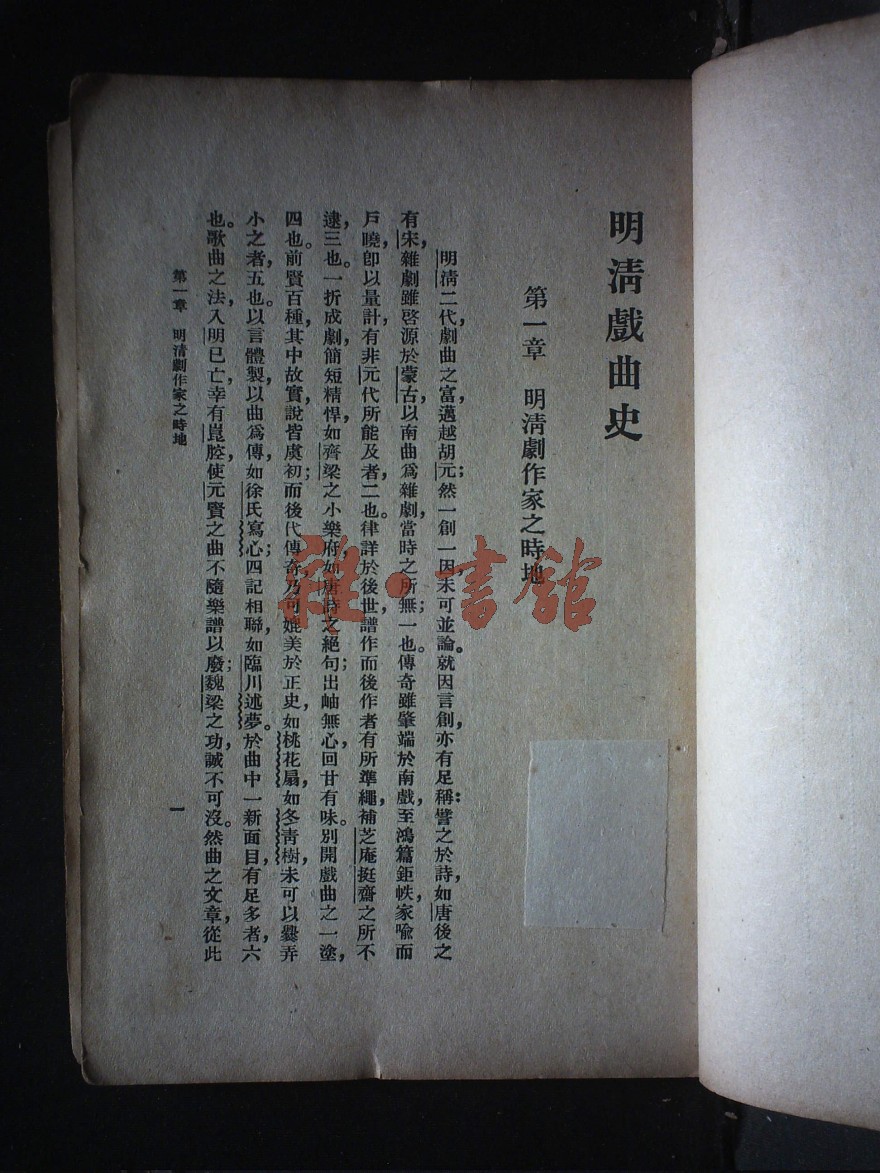 明清戲曲史
第一章　明清劇作家之時地
明清二代劇曲之富，邁越胡元；然一創一因，未可並論。就因言創，亦有足稱：譬之於詩，如唐後之
有宋，雜劇雖啓源於蒙古，以南曲爲雜劇，當時之所無；一也。傳奇雖肇端於南戲，至鴻篇鉅帙，家喻而
戶曉，卽以量計，有非元代所能及者，二也。律詳於後世，譜作而後作者有所準繩，補芝庵挺齋之所不
逮，三也。一折成劇，簡短精悍，如齊梁之小樂府，如唐詩之絕句；出岫無心，回甘有味。別開戲曲之一塗，
四也。前賢百種，其中故實，說皆虞初；而後代傳奇，乃可媲美於正史，如桃花扇，如冬靑樹，未可以爨弄
小之者，五也。以言體製，以曲爲傳，如徐氏寫心；四記相聯，如臨川述夢。於曲中一新面目，有足多者，六
也。歌曲之法，入明已亡，幸有崑腔，使元賢之曲不隨樂譜以廢；魏梁之功，誠不可沒。然曲之文章，從此
第一章　明清劇作家之時地
一
雜·書館